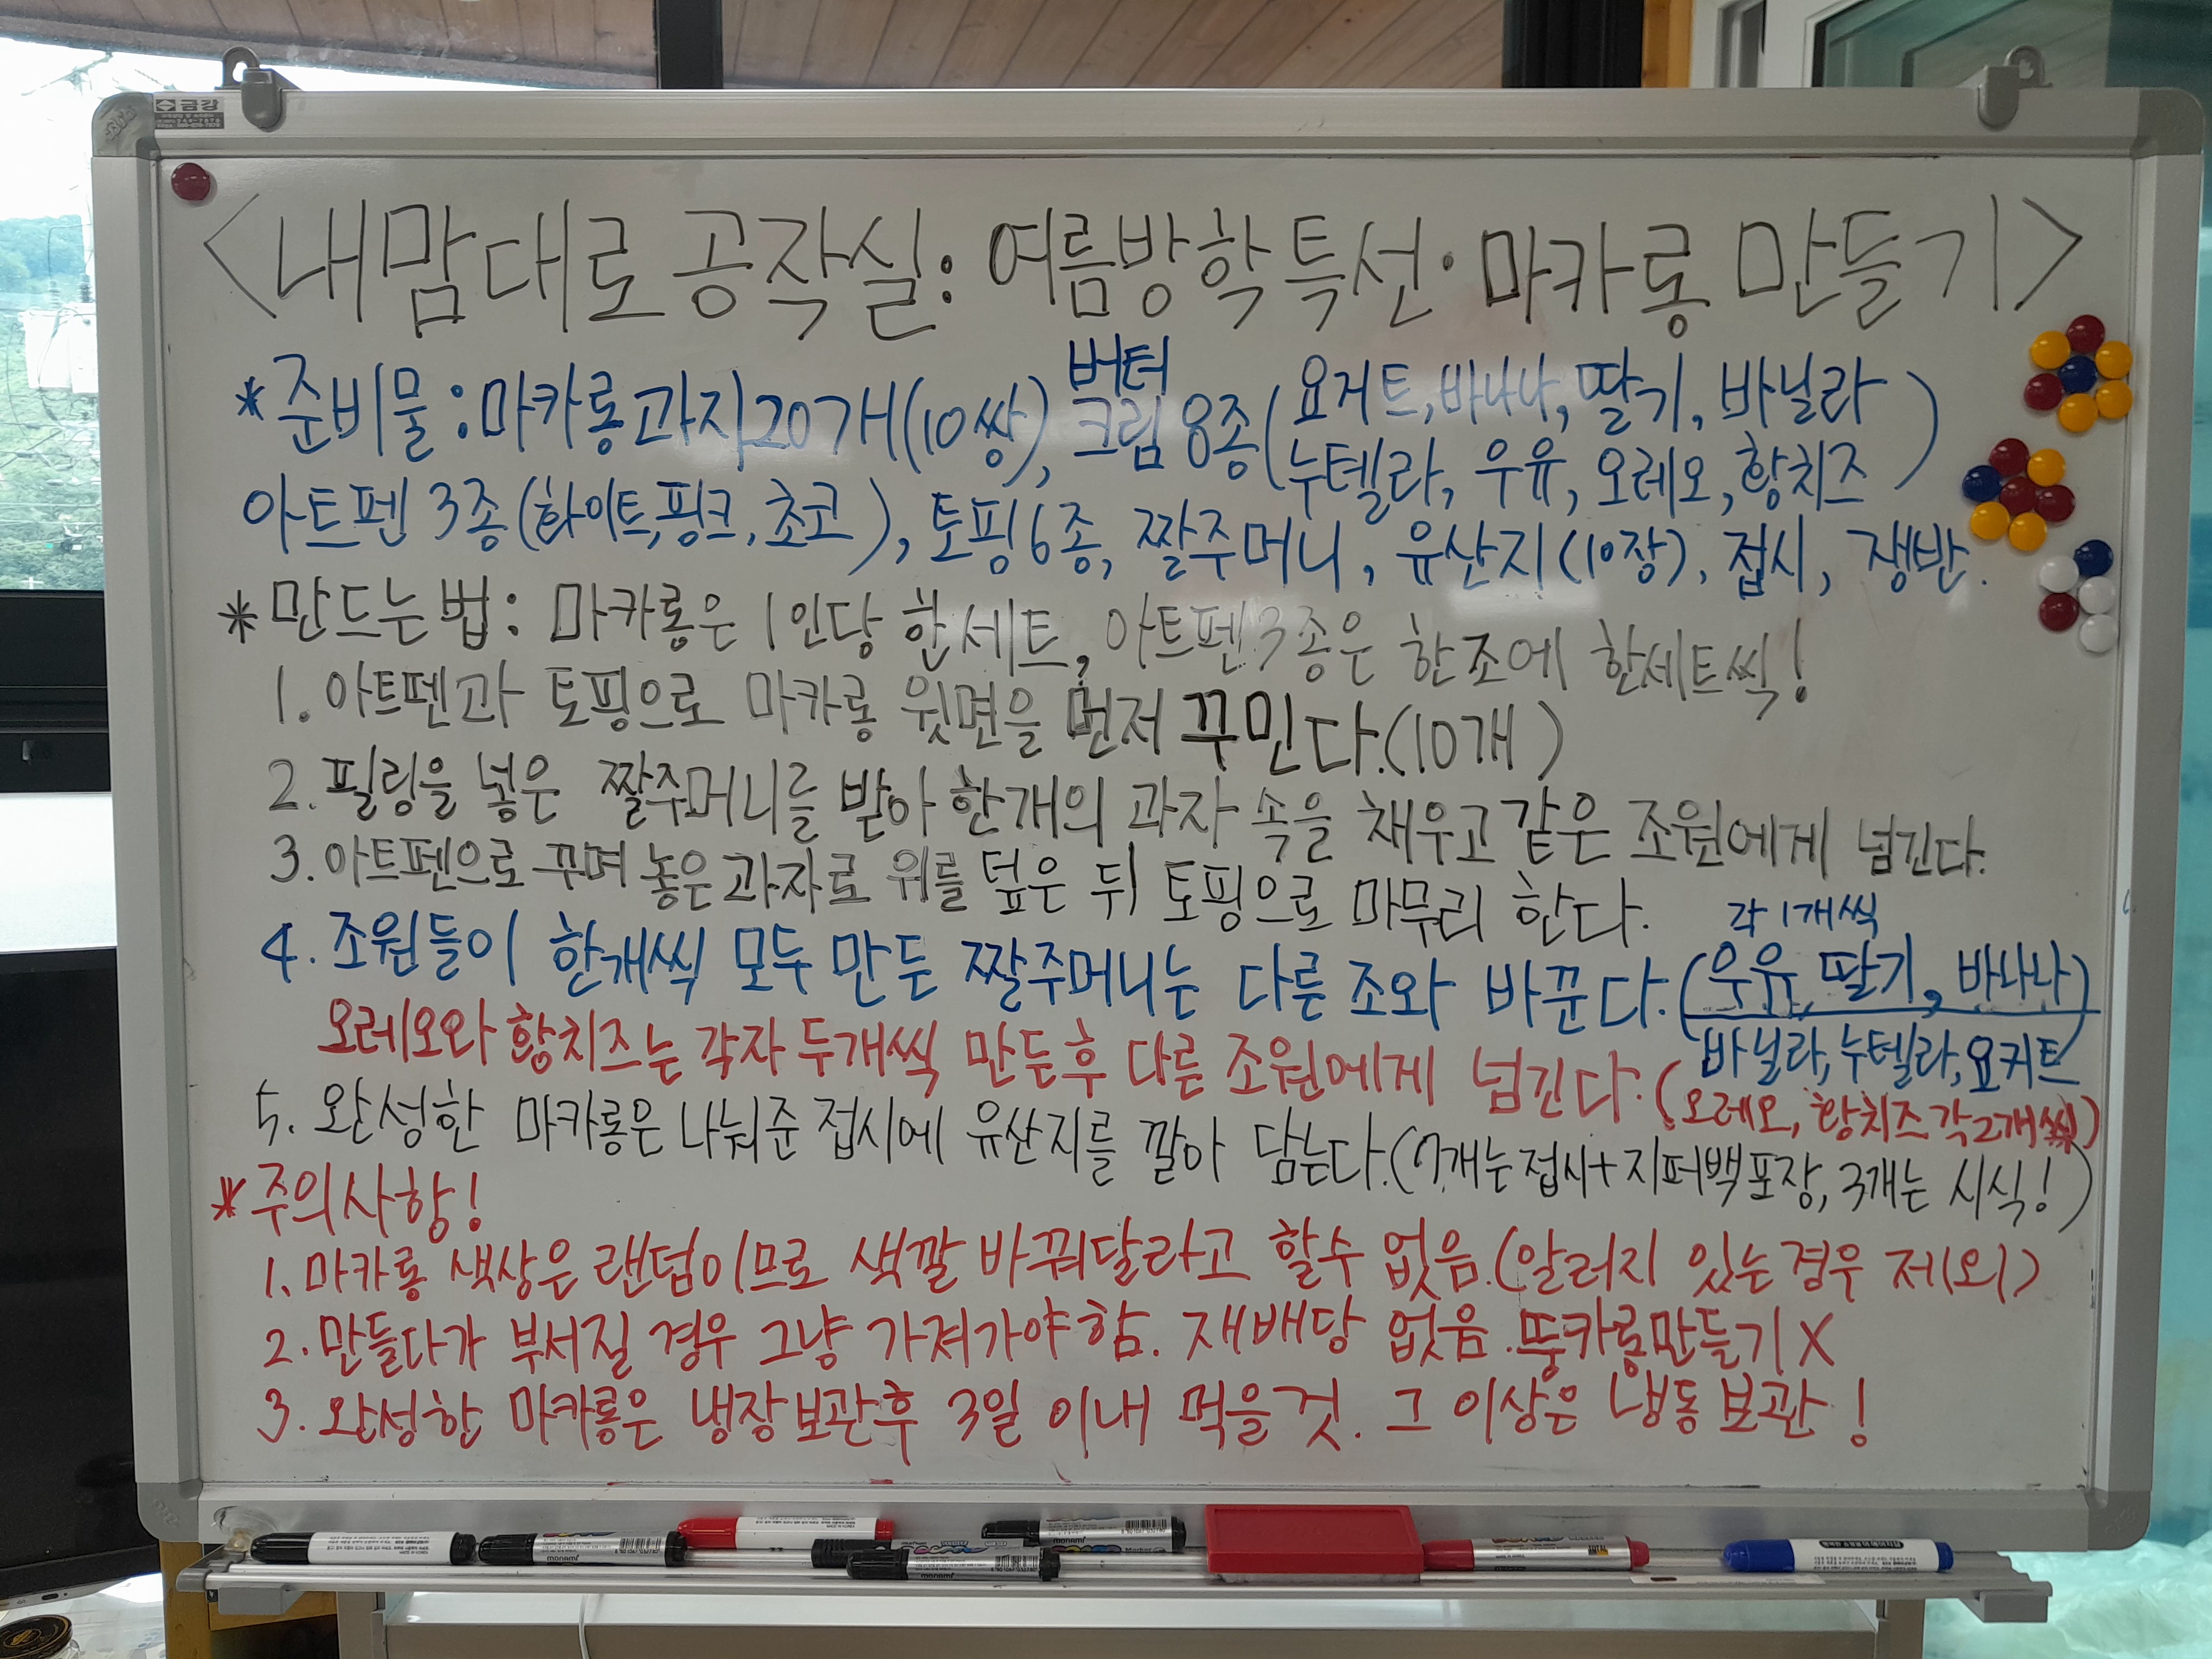 금강
<내맘대로 공작실: 여름방학특선·마카롱 만들기>
*준비물:마카롱과자20개(10쌍), 버터크림 8종(요거트,바나나,딸기,바닐라
누텔라, 우유, 오레오,황치즈)
아트펜 3종(화이트,핑크,초코), 토핑6종, 짤주머니, 유산지(10장), 접시, 쟁반.
*만드는법: 마카롱은 1인당 한세트, 아트펜3종은 한조에 한세트씩!
1. 아트펜과 토핑으로 마카롱 윗면을 먼저 꾸민다.(10개)
2. 필링을 넣은 짤주머니를 받아 한개의 과자 속을 채우고 같은 조원에게 넘긴다.
3. 아트펜으로 꾸며 놓은 과자로 위를 덮은 뒤 토핑으로 마무리 한다.
각1개씩
4. 조원들이 한개씩 모두 만든 짤주머니는 다른 조와 바꾼다.(우유, 딸기, 바나나)
바닐라,누텔라,요거트
오레오와 황치즈는 각자 두개씩 만든후 다른 조원에게 넘긴다.(오레오, 황치즈 각2개씩)
5. 완성한 마카롱은 나눠준 접시에 유산지를 깔아 담는다.(7개는접시+지퍼백포장, 3개는 시식!)
*주의사항!
1. 마카롱 색상은 랜덤이므로 색깔 바꿔달라고 할수 없음.(알러지 있는경우 제외)
2. 만들다가 부서질 경우 그냥 가져가야 함. 재배당 없음. 뚱카롱만들기X
3. 완성한 마카롱은 냉장보관후 3일 이내 먹을 것. 그 이상은 냉동보관!
monami
monami
monami